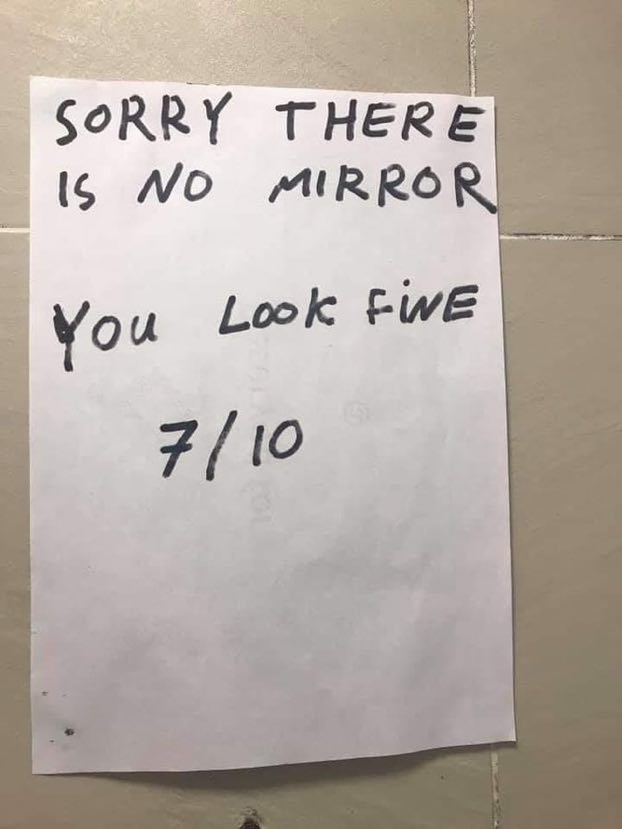 SORRY THERE
IS NO MIRROR
YOU LOOK FINE
7/10